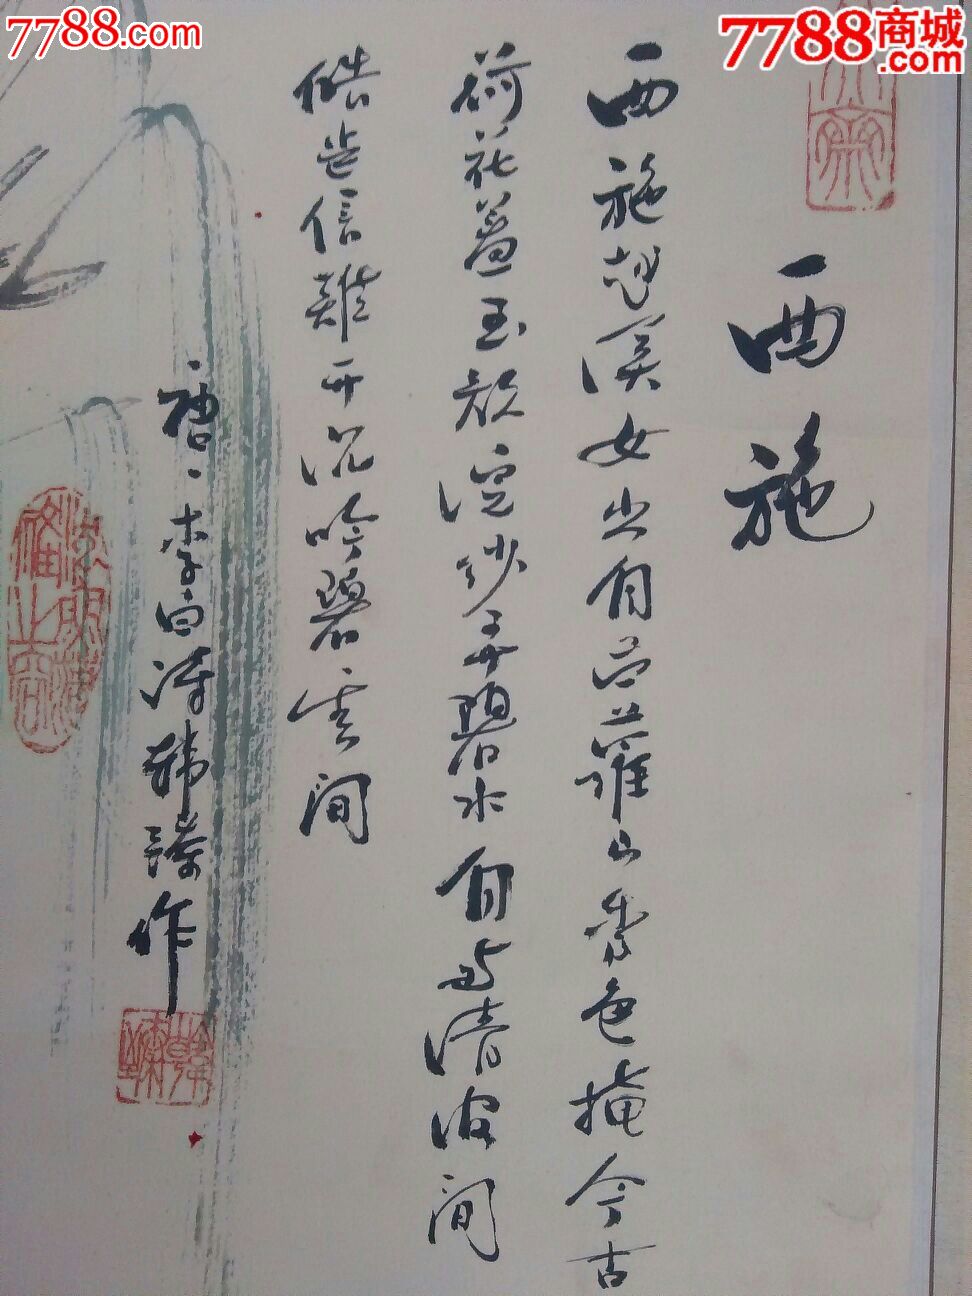 7788.com
7788商城
.com
西施
西施越溪女出自苎蘿山秀色掩今古
荷花羞玉颜浣纱弄碧水自与清波间
皓齿信難开沉吟碧雲间
唐、李白诗韩臻作